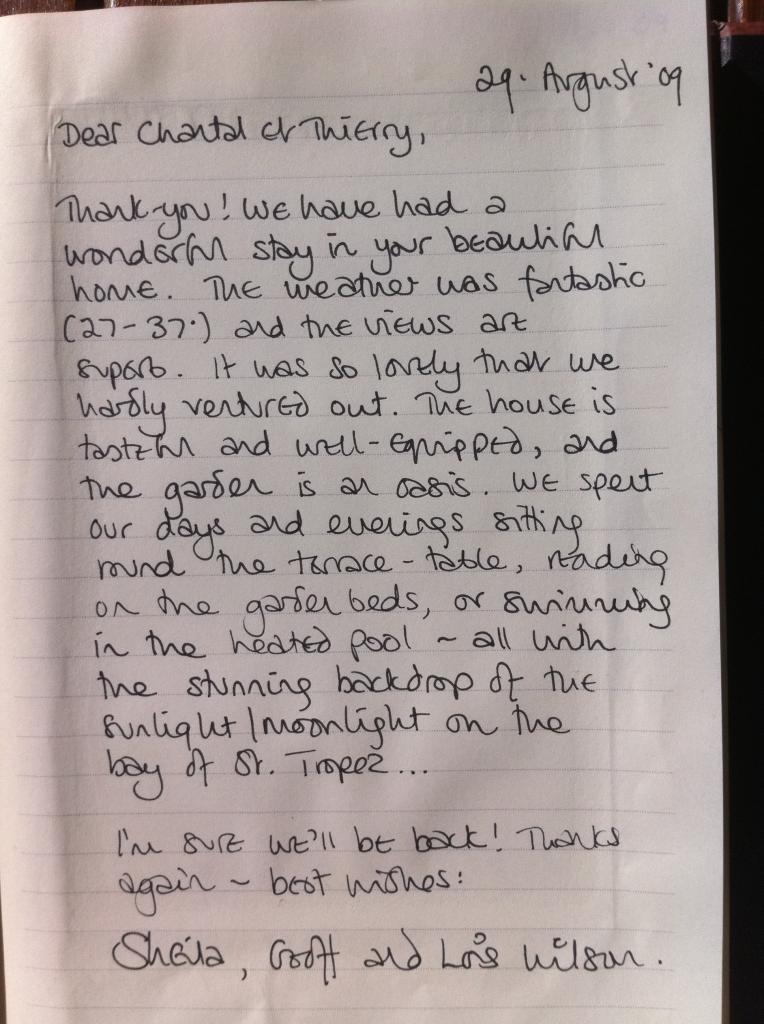 29. August '09
Dear Chantal et Thierry,
Thank-you! We have had a
wonderful stay in your beautiful
home. The weather was fantastic
(27-37°) and the views are
superb. It was so lovely that we
hardly ventured out. The house is
tasteful and well-equipped, and
the garden is an oasis. We spent
our days and evenings sitting
round the terrace-table, reading
on the garden beds, or swimming
in the heated pool ~ all with
the stunning backdrop of the
sunlight/moonlight on the
bay of St. Tropez...
I'm sure we'll be back! Thanks
again ~ best wishes:
Sheila, Geoff and Lois Wilson.